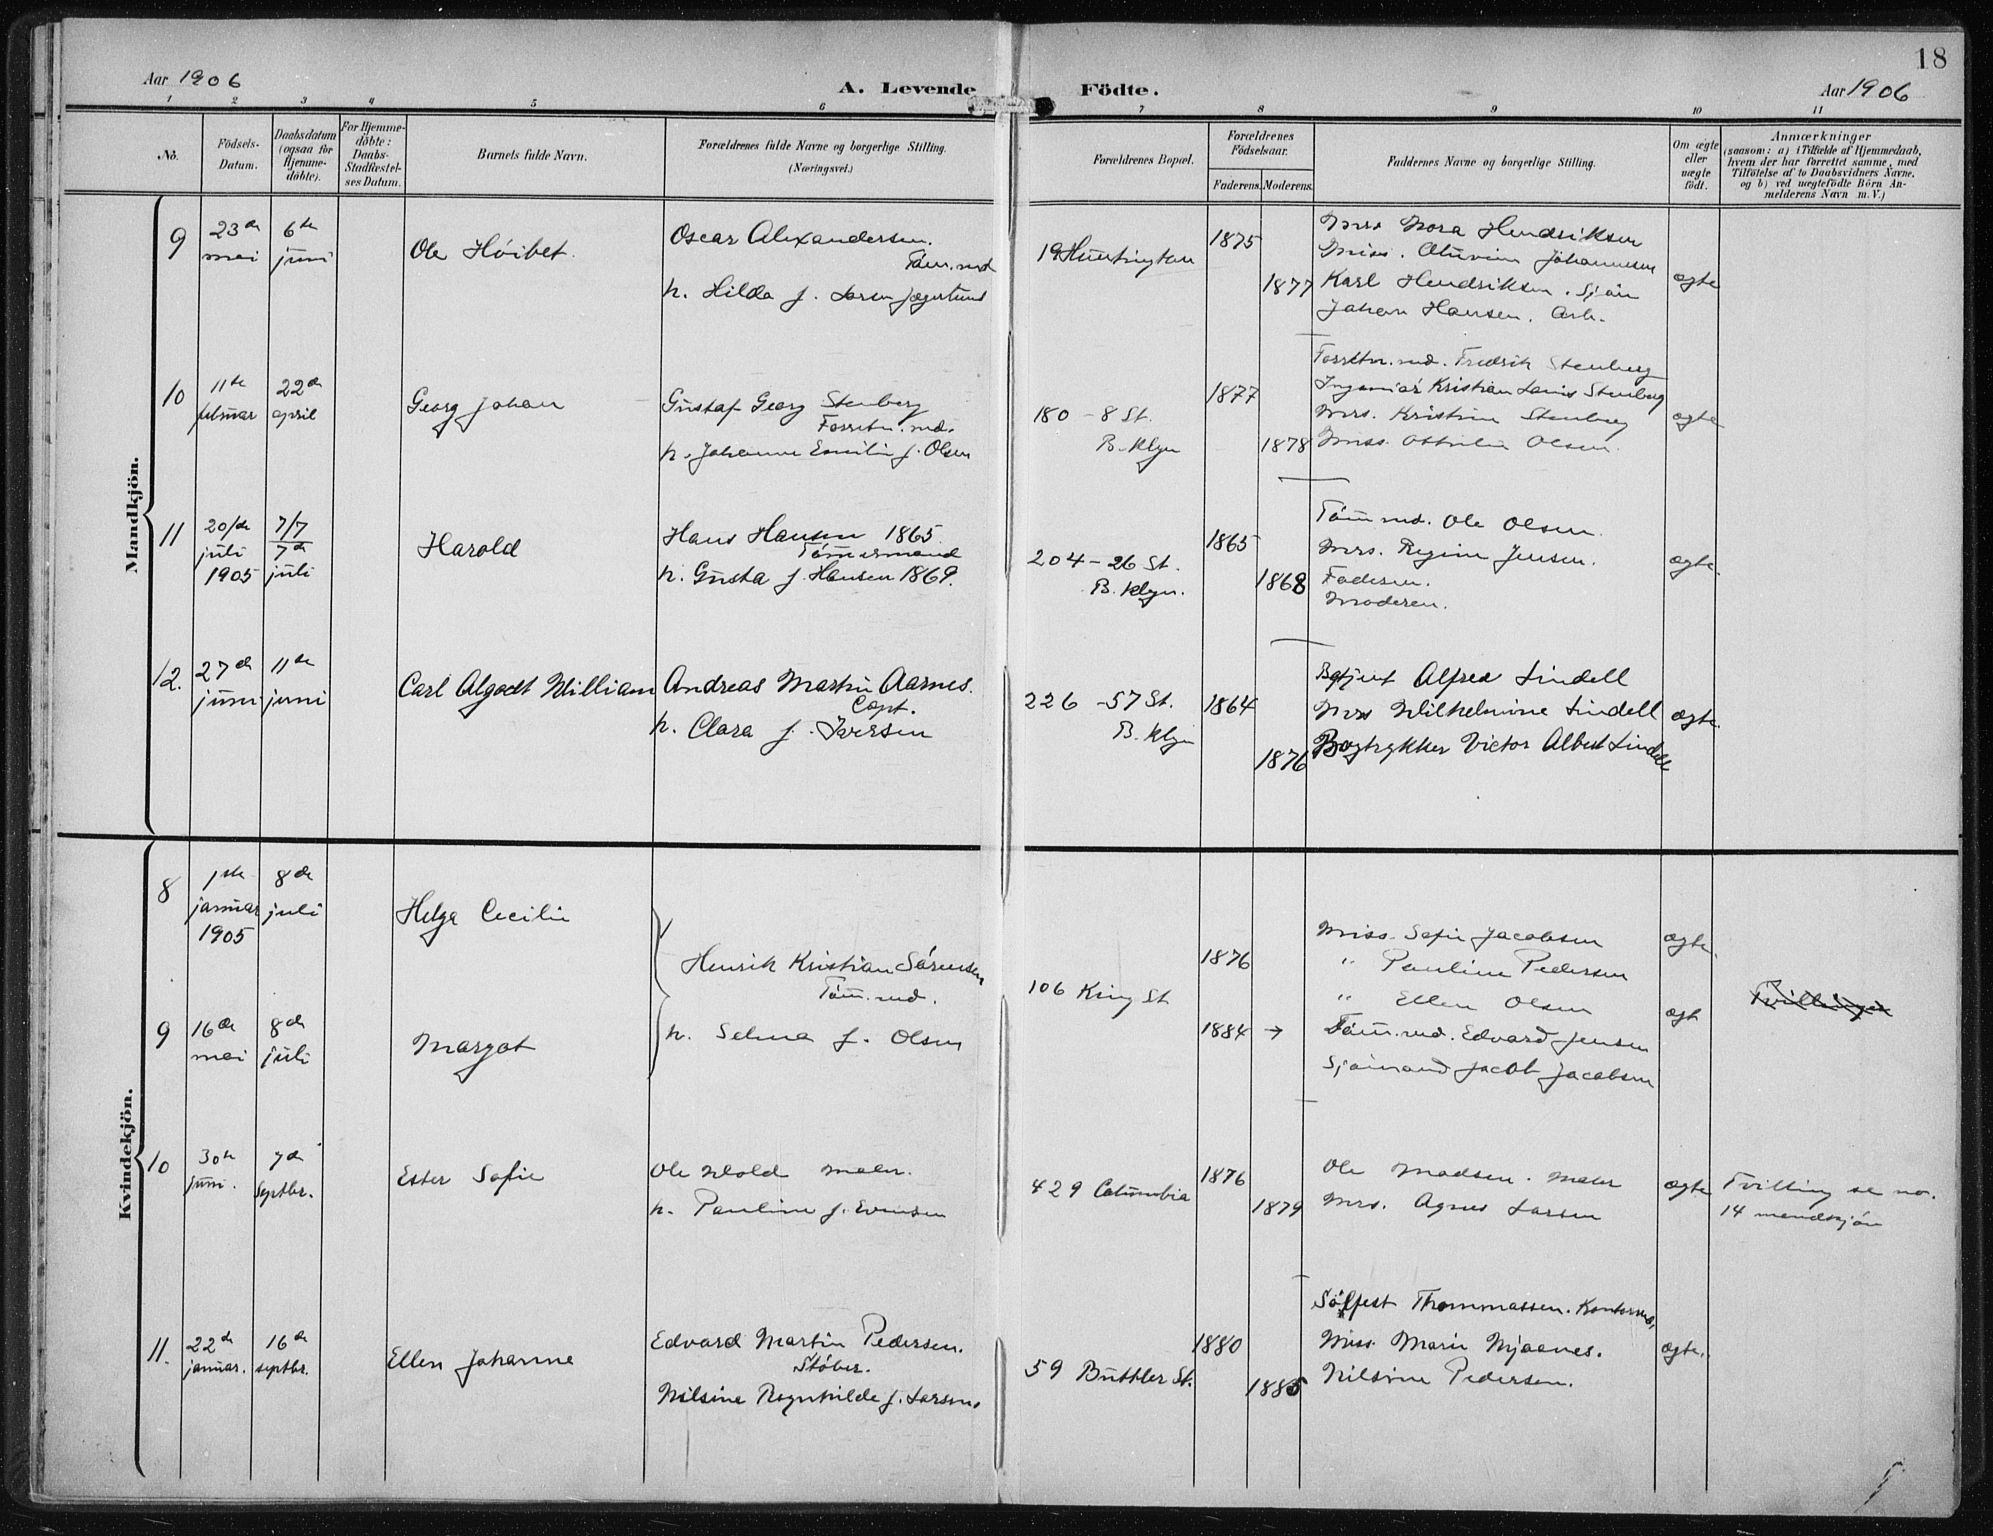 18
Aar 1906
A. Levende Födte.
Aar 1906
1 2 3 4 5 6 7 8 9 10 11
No.
Födsels-
Datum.
Daabsdatum
(ogsaa for
Hjemme-
döbte).
For Hjemme-
döbte:
Daabs-
Stadfæstel-
ses Datum.
Barnets fulde Navn.
Forældrenes fulde Navne og borgerlige Stilling.
(Næringsvei.)
Forældrenes Bopæl.
Forældrenes
Födselsaar.
Faderens.
Moderens.
Faddernes Navne og borgerlige Stilling.
Om ægte
eller
uægte
födt.
Anmærkninger
(saasom: a) i Tilfælde af Hjemmedaab,
hvem der har forrettet samme, med
Tilföielse af to Daabsvidners Navne,
og b) ved uægtefödte Börn An-
melderens Navn m. V.)
Mandkjön.
9
23de
mai
6te
juni
Ole Höibet.
Oscar Alexandersen.
Töm.md
h. Hilda f. Larsen
19 Huntington
1875
1877
Mrs Nora Hendriksen
Miss. Johannesen
Karl Hendriksen. Sjöm
Johan Hansen. Arb.
ægte
10
11te
februar
22de
april
Georg Johan
Gustaf Georg Stenberg
Forretn.md.
h. Johanne Emilie f. Olsen
180 - 8 St.
B.klyn
1877
1878
Forretn.md. Fredrik Stenberg
Ingeniör Kristian Louis Stenberg
Mrs. Kristine Stenberg
Miss. Olsen.
ægte
11
20/de
juli
1905
7/7
7de
juli
Harold
Hans Hansen 1865.
Tömmermand
h. Gusta f. Hansen 1869.
204 - 26 St.
B.klyn.
1865
1868
Töm md. Ole Olsen.
Mrs. Regine Jensen.
Faderen.
Moderen.
ægte.
12.
27de
juni
11te
juni
Carl Algodt William
Andreas Martin Aarnes.
Capt.
h. Clara f. Iversen
226 - 57 St.
B.klyn
1864
1876
Alfred Lindell
Mrs Wilhelmine Lindell
Bogtrykker Victor Albert Lindell
ægte.
Kvindekjön.
8
1ste
januar
1905
8de
juli
Helga Cecilie
Henrik Kristian Sörensen
Töm.md.
h. Selma f. Olsen
106 King St
1876
1884 →
Miss. Sofie Jacobsen
" Pauline Pedersen
" Ellen Olsen
Töm.md. Edvard Jensen
Sjömand Jacob Jacobsen
ægte.
9
16de
mai
8de
juli
Margot
ægt
Tvillinger
10
30te
juni.
7de
Septbr.
Ester Sofie
Ole Wold maler.
h. Pauline f. Evensen
429 Columbia
1876
1879
Ole Madsen. Maler
Mrs. Agnes Larsen
ægte
Tvilling se no.
14 mandkjön
11.
22de
januar.
16de
septbr.
Ellen Johanne
Edvard Martin Pedersen.
Stöber.
Nilsine Ragnhilde f. Larsen.
59 Buttler St.
1880
1885
Sölfest Thommassen. Kontormd.
Miss. Marie Mjaanes.
Nilsine Pedersen.
ægte.